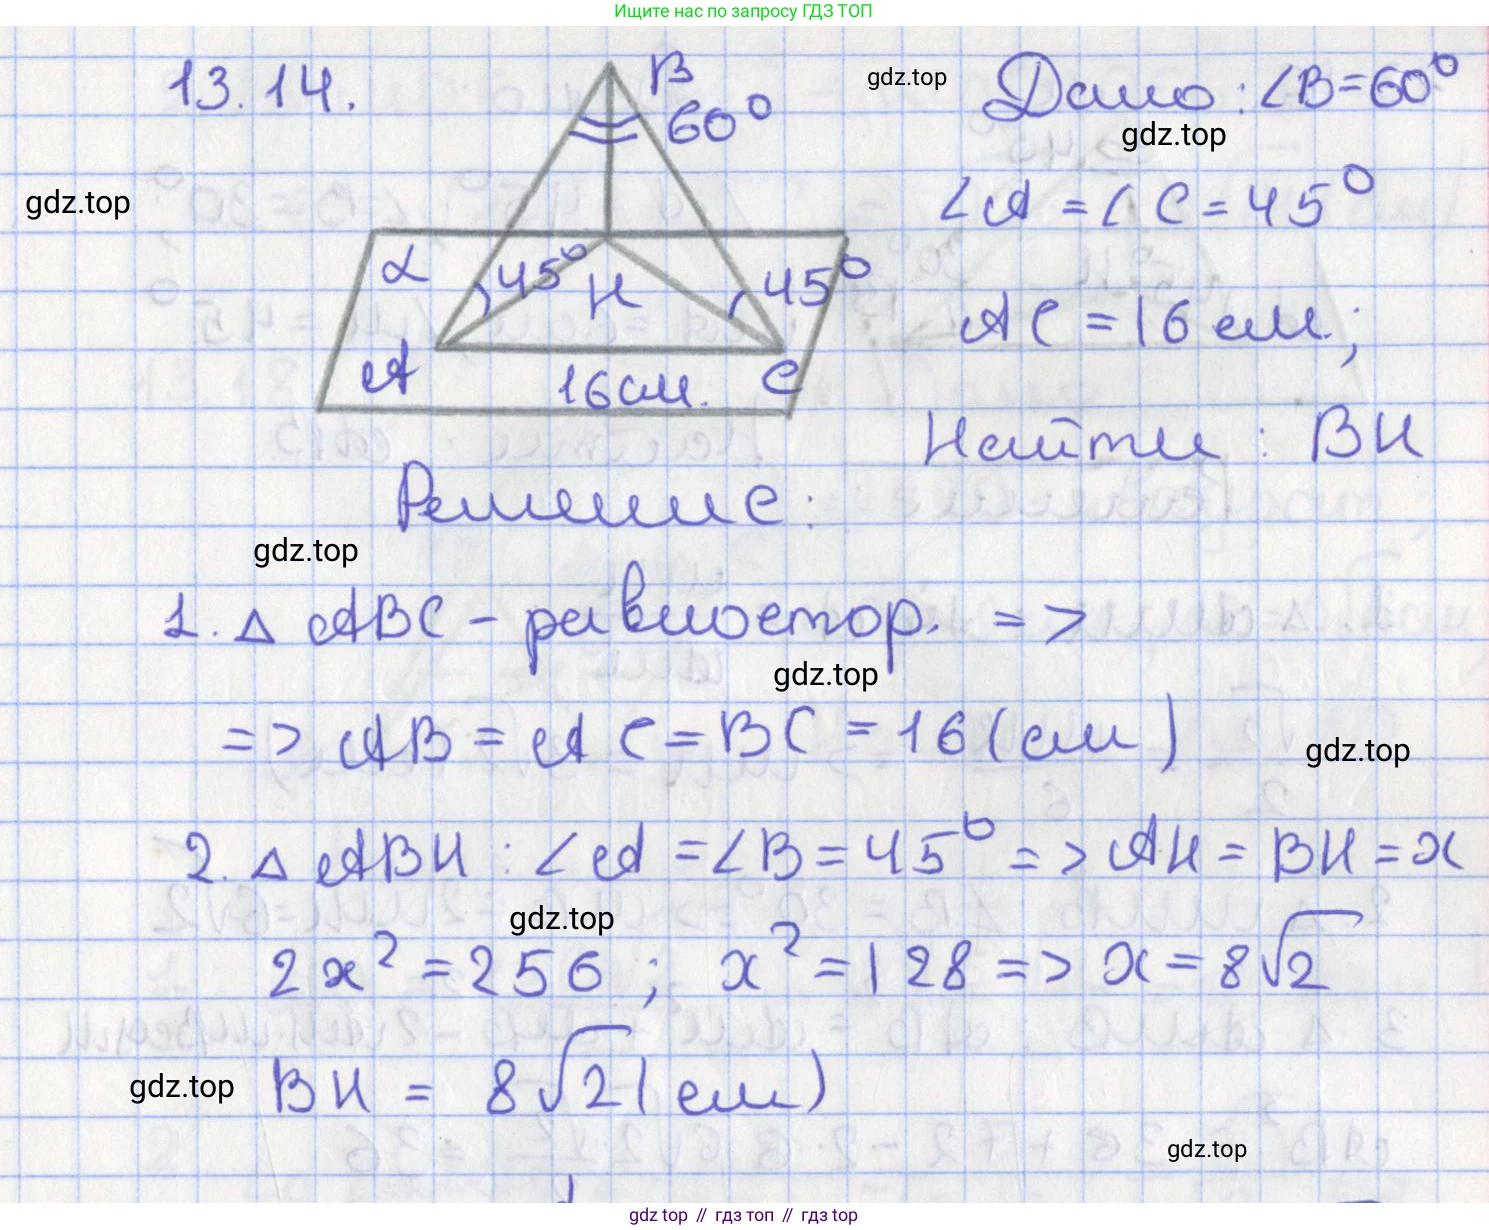 Ищите нас по запросу ГДЗ ТОП
13.14.
B
60°
α
45°
H
45°
A
16 см.
C
gdz.top
Дано: ∠B=60°
gdz.top
gdz.top
∠A = ∠C = 45°
AC = 16 см;
Найти: BH
Решение:
gdz.top
1. △ ABC - равностор. =>
gdz.top
=> AB = AC = BC = 16 (см)
gdz.top
2. △ ABH: ∠A = ∠B = 45° => AH = BH = x
gdz.top
2x² = 256; x² = 128 => x = 8√2
gdz.top
BH = 8√2 (см)
gdz.top
gdz top // гдз топ // гдз top